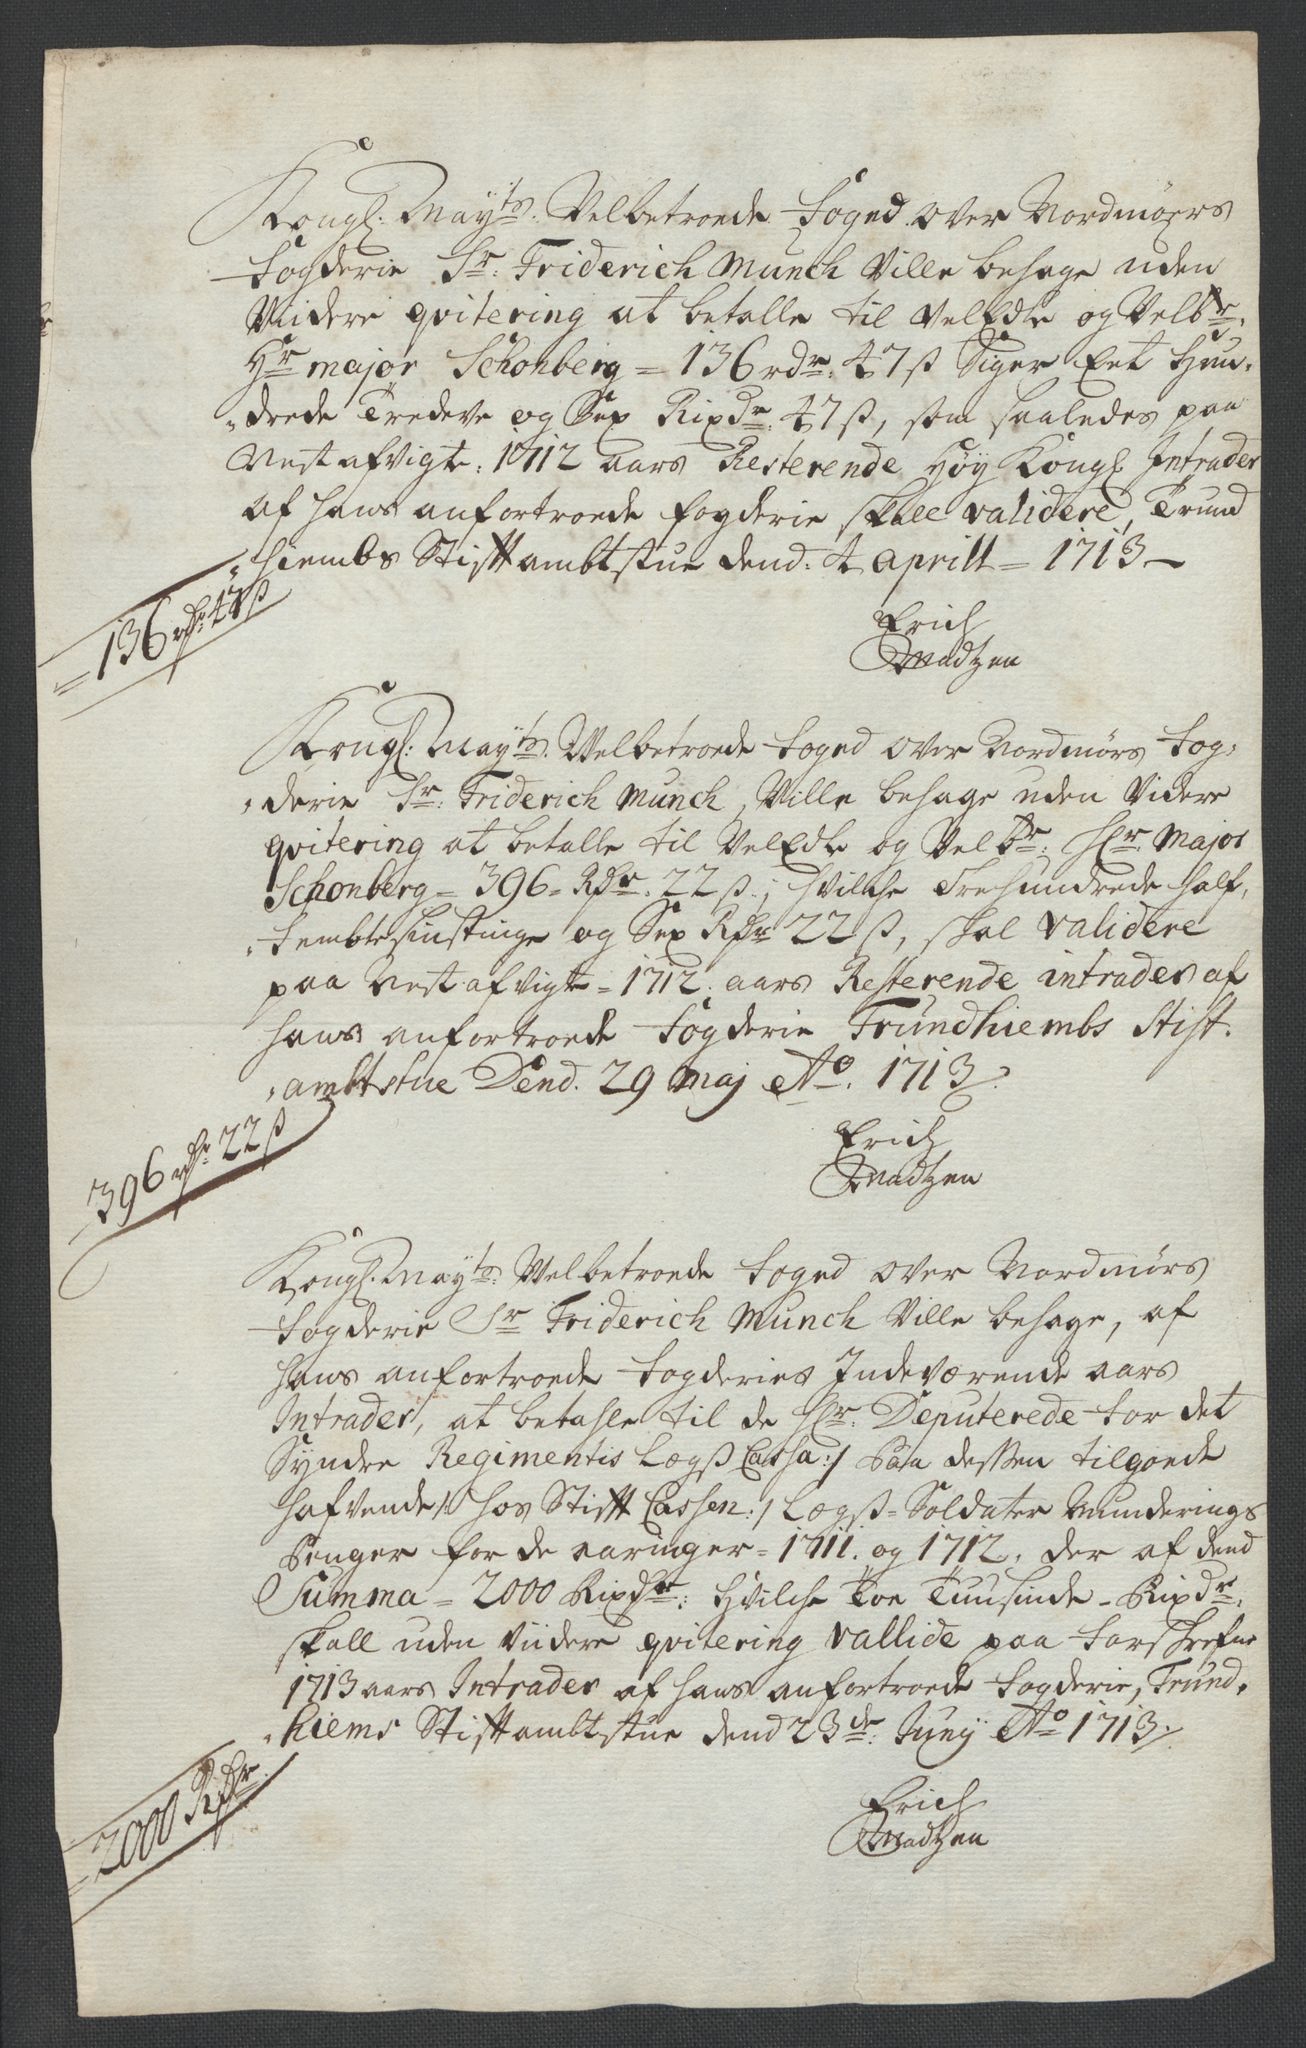 Kongl: Mayts. Velbetroede foged over Nordmøers
fogderie Sr: Friderich Munch Ville behage uden
Viidere qvitering at betalle til VelEdle og Velbr:
Hr major Schonberg = 136 rdr: 47 ß Siger Eet Hun-
drede Tredeve og Sex Rixdr: 47 ß, som saaledes paa
Nest afvigte: 1712 aars Resterende Høy Kongl Intrader
af hans anfortroede fogderie skall validere, Trund
hiembs Stiftambtstue dend: 4 aprill = 1713 —
= 136 rdr: 47 ß
Erich
Madtzen
Kongl: Mayts. Velbetroede foged over Nordmørs fog-
derie Sr: Friderich Munch, Ville behage uden Videre
qvitering at betalle til VelEdle og Velbr: Hr: Major
Schonberg = 396 = Rdr: 22 ß.; hvilche Trehundrede half-
fembtesinstinge og Sex Rdr 22 ß, skal validere
paa Nest afvigte = 1712. aars Resterende intrader af
hans anfortroede fogderie Trundhiembs Stift.
ambtstue Dend. 29 maj Ao. 1713 /.
396 rdr: 22 ß
Erich
Madtzen
Kongl. Mayts: Velbetroede foged over Nordmørs
fogderie Sr Friderich Munch Ville behage, af
hans anfortroede fogderies Indeværende aars
Intrader, at betahle til de Hr: Deputerede for det
Syndre Regimentis Lægß Cassa :/ Paa dessen tilgoede
hafvende /: hos Stift Cassen :/ Lægß = Soldater Munderings
Penger for de aaringer = 1711. og 1712, der af dend
Summa = 2000 Rixdr: Hvilche Toe Tuusinde - Rixdr:
skall uden viidere qvitering vallide paa forschrefne
1713 aars Intrader af hans anfortroede fogderie, Trund-
hiems Stiftambtstue dend 23de: Junij Ao 1713 /.
= 2000 Rdr
Erich
Madtzen